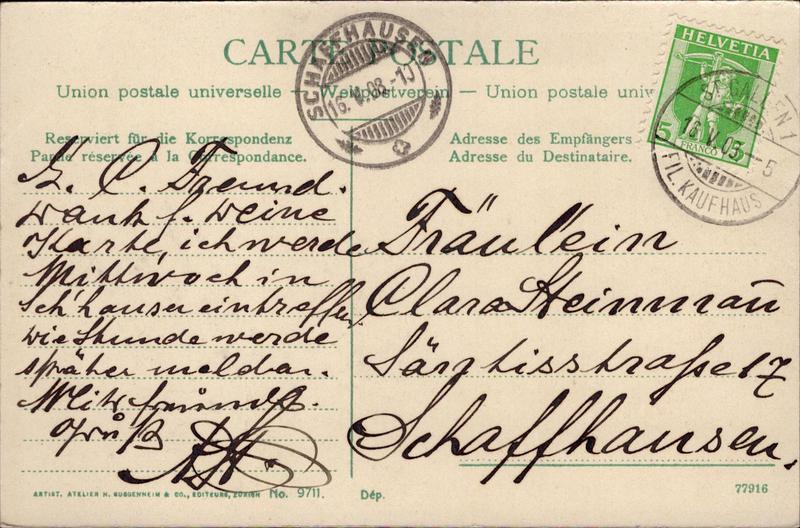 CARTE POSTALE
Union postale universelle — Weltpostverein — Union postale univ
Reserviert für die Korrespondenz
Partie réservée à la Correspondance.
Adresse des Empfängers
Adresse du Destinataire.
SCHAFFHAUSEN
16. V. 08.-10
HELVETIA
5
FRANCO
ST. GALLEN 1
16. V. 08.-5
FIL. KAUFHAUS
C. Freund.
Dank f. Deine
Karte, ich werde
Mittwoch in
Sch'hausen eintreffen,
die Stunde werde
später melden.
Mit freundl.
Gruß
Fräulein
Clara Steinmañ
Säntisstraße 17
Schaffhausen.
ARTIST. ATELIER H. GUGGENHEIM & CO., EDITEURS, ZÜRICH No. 9711.
Dép.
77916